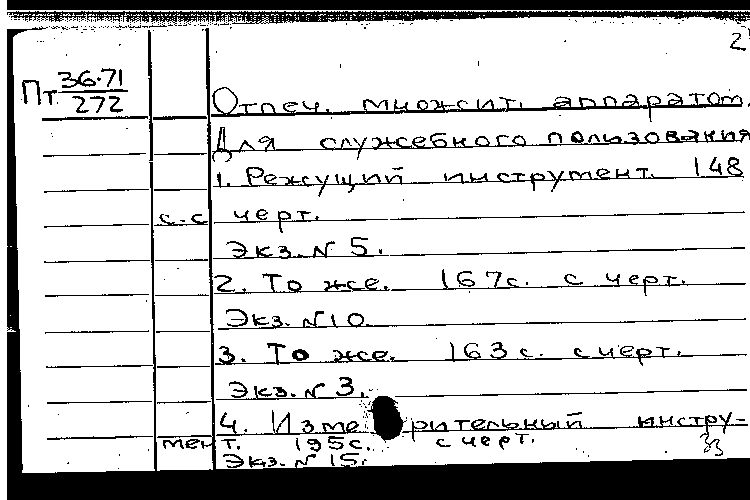 2
Пт 36.71
272
Отпеч. множит. аппаратом.
Для служебного пользования
1. Режущий инструмент. 148
с.с черт.
Экз. N 5.
2. То же. 167с. с черт.
Экз. N 10
3. То же. 163 с. с черт.
Экз. N 3.
4. Изме рительный инстру-
мент. 195с. с черт.
Экз. N 15.